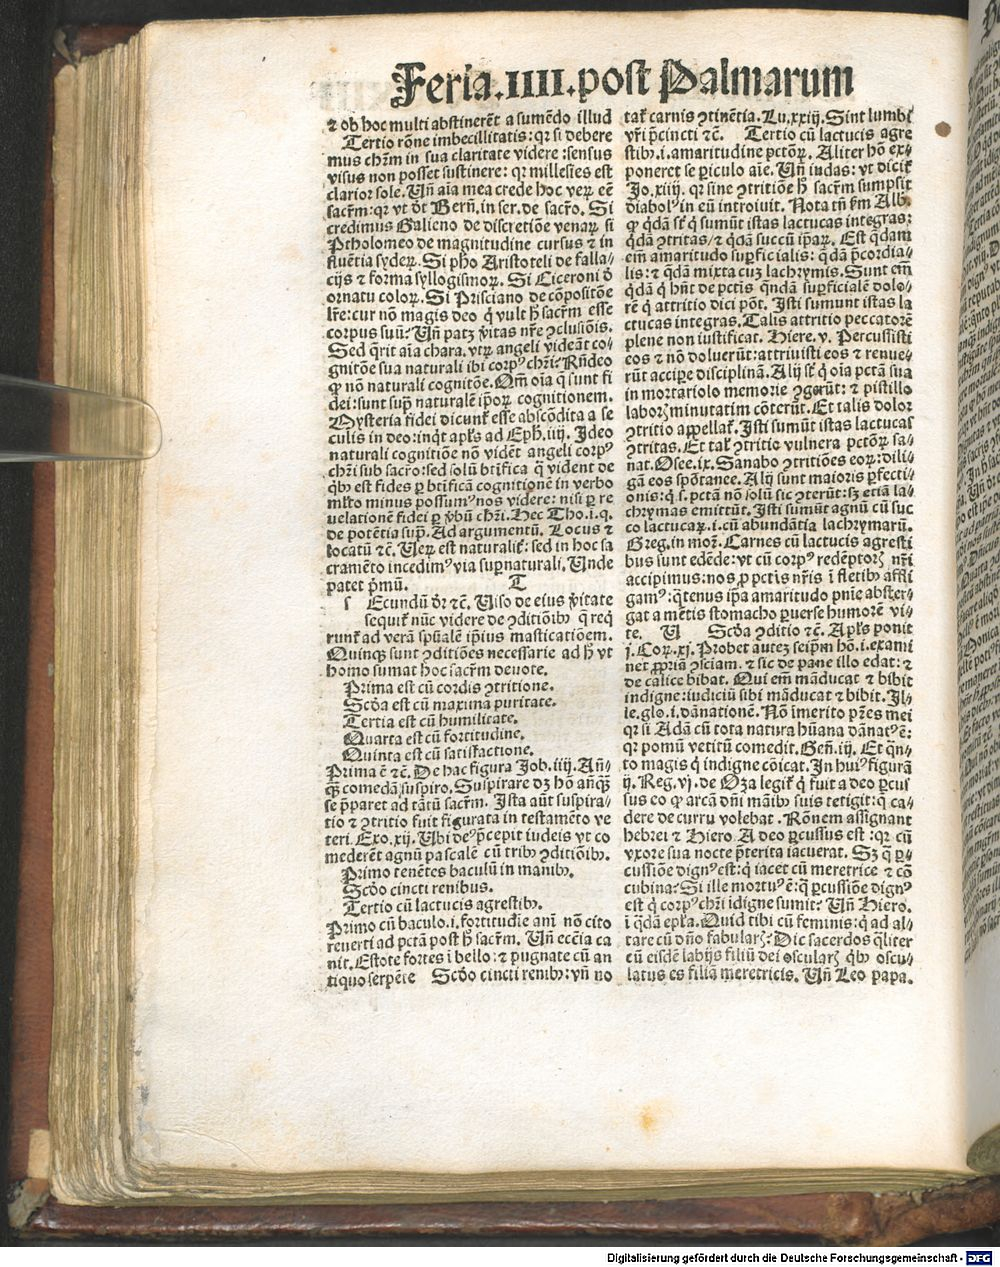 Feria.IIII.post Palmarum
⁊ ob hoc multi abstinerēt a sumēdo illud
Tertio rōne imbecillitatis: qꝛ si debere
mus chr̄m in sua claritate videre :sensus
visus non posset sustinere: qꝛ millesies est
clarior sole. Uñ aīa mea crede hoc verꝫ eē
sacr̄m: qꝛ vt dt̄ Berñ. in ser. de sacr̄o. Si
credimus Galieno de discretiōe venaꝝ si
Ptholomeo de magnitudine cursus ⁊ in
fluētia sydeꝝ. Si ph̄o Aristoteli de falla⸗
cijs ⁊ forma syllogismoꝝ. Si Ciceroni ð
ornatu coloꝝ. Si Prisciano de cōpositōe
lr̄e: cur nō magis deo q̇ vult h̄ sacr̄m esse
corpus suū? Uñ patꝫ v̇itas nr̄e ↄclusiōis.
Sed q̄rit aīa chara. vtꝝ angeli videāt co⸗
gnitōe sua naturali ibi corpꝰ chr̄i? Rn̄deo
ꝙ nō naturali cognitōe. Om̄ oīa q̄ sunt fi
dei: sunt supꝰ naturalē ip̄oꝝ cognitionem.
Mysteria fidei dicunt᷑ esse abscōdita a se
culis in deo: inq̇t apl̄s ad Eph̄. iij. Ideo
naturali cognitiōe nō vidēt angeli corpꝰ
chr̄i sub sacr̄o: sed solū btīfica q̄ vident de
q̇bꝰ est fides ꝑ btīficā cognitionē in verbo
ml̄to minus possumꝰ nos videre: nisi ꝑ re
uelationē fidei ꝑ v̇bū chr̄i. Hec Tho. i. q.
de potētia sup̄. Ad argumentū. Locus ⁊
locatū ⁊c̄. Ueꝝ est naturalit᷑: sed in hoc sa
cramēto incedimꝰ via sup̄naturali. Unde
patet p̄mū. T
s Ecundū dr̄ ⁊c̄. Uiso de eius v̇itate
sequit᷑ nūc videre de ↄditiōibꝰ q̄ req̇
runt᷑ ad verā spūalē ip̄ius masticatiōem.
Quinqꝫ sunt ↄditiōes necessarie ad h̄ vt
homo sumat hoc sacr̄m deuote.
Prima est cū cordis ↄtritione.
Scd̄a est cū maxima puritate.
Tertia est cū humilitate.
Quarta est cū fortitudine.
Quinta est cū satisfactione.
Prima ē ⁊c̄. De hac figura Job. iij. An̄⸗
q̄ꝫ comedā suspiro. Suspirare dꝫ hō an̄q̄ꝫ
se p̄paret ad tātū sacr̄m. Ista aūt suspira⸗
tio ⁊ ↄtritio fuit figurata in testamēto ve
teri. Exo. xij. Ubi deꝰ p̄cepit iudeis vt co
mederēt agnū pascalē cū tribꝰ ↄditiōibꝰ.
Primo tenētes baculū in manibꝰ.
Scd̄o cincti renibus.
Tertio cū lactucis agrestibꝰ.
Primo cū baculo. i. fortitudīe ani᷑ nō cito
reuerti ad pctā post h̄ sacr̄m. Uñ ecc̄ia ca
nit. Estote fortes ī bello: ⁊ pugnate cū an
tiquo serpēte Scd̄o cincti renibꝰ: vn̄ no
tat᷑ carnis ↄtinētia. Lu. xxij. Sint lumbi
vr̄i p̄cincti ⁊c̄. Tertio cū lactucis agre
stibꝰ. i. amaritudine pctōꝝ. Aliter hō ex⸗
poneret se ꝑiculo aīe. Uñ iudas: vt dicit᷑
Jo. xiij. qꝛ sine ↄtritiōe h̄ sacr̄m sumpsit
diabolꝰ in eū introiuit. Nota tn̄ ẜm Alb.
ꝙ q̇dā st̄ q̇ sumūt istas lactucas integras:
q̇dā ↄtritas/ ⁊ q̇dā succū ip̄aꝝ. Est q̄dam
em̄ amaritudo suꝑficialis: q̄dā p̄cordia⸗
lis: ⁊ q̄dā mixta cuꝫ lachrymis. Sunt em̄
q̇dā q̇ hn̄t de pctīs q̄ndā suꝑficialē dolo⸗
rē q̇ attritio dici pōt. Isti sumunt istas la
ctucas integras. Talis attritio peccatorē
plene non iustificat. Hiere. v. Percussisti
eos ⁊ nō doluerūt: attriuisti eos ⁊ renue⸗
rūt accipe disciplinā. Alij st̄ q̇ oīa pctā sua
in mortariolo memorie ↄgerūt: ⁊ pistillo
laborꝫ minutatim cōterūt. Et talis dolor
ↄtritio appellat᷑. Isti sumūt istas lactucas
ↄtritas. Et tal᷑ ↄtritio vulnera pctōꝝ sa⸗
nat. Osee. ix. Sanabo ↄtritiōes eoꝝ: dili⸗
gā eos spōtanee. Alij sunt maioris ꝑfecti⸗
onis: q̇ .s. pctā nō solū sic ↄterūt: sꝫ etiā la⸗
chrymas emittūt. Isti sumūt agnū cū suc
co lactucaꝝ. i. cū abundātia lachrymarū.
Greg. in moꝝ. Carnes cū lactucis agresti
bus sunt edēde: vt cū corpꝰ redēptorꝫ nr̄i
accipimus: nos ꝓ pctīs nr̄is ī fletibꝰ affli
gamꝰ: q̄tenus ip̄a amaritudo pn̄ie absṫer⸗
gat a mētis stomacho ꝑuerse humorē vi⸗
te. U Scd̄a ↄditio ⁊c̄. Apl̄s ponit
j. Coꝝ. xj. Probet auteꝫ seip̄m hō. i. exami
net ꝓpriā ↄsciam. ⁊ sic de pane illo edat: ⁊
de calice bibat. Qui em̄ māducat ⁊ bibit
indigne: iudiciū sibi māducat ⁊ bibit. Il⸗
le. glo. i. dānationē. Nō īmerito pr̄es mei
qꝛ si Adā cū tota natura hūana dānatꝰ ē:
qꝛ pomū vetitū comedit. Geñ. iij. Et q̄n⸗
to magis q̇ indigne cōicat. In huiꝰ figurā
ij. Reg. vj. de Oza legit᷑ q̇ fuit a deo ꝑcus
sus eo ꝙ arcā dn̄i māibꝰ suis tetigit: q̄ ca⸗
dere de curru volebat . Rōnem assignant
hebrei ⁊ Hiero. A deo ꝑcussus est : qꝛ cū
vxore sua nocte p̄terita iacuerat. Sꝫ q̄ ꝑ⸗
cussiōe dignꝰ est: q̇ iacet cū meretrice ⁊ cō
cubina? Si ille mortuꝰ ē: q̄ ꝑcussiōe dignꝰ
est q̇ corpꝰ chr̄i īdigne sumit? Uñ Hiero.
ī q̄dā epl̄a. Quid tibi cū feminis: q̇ ad al⸗
tare cū dn̄o fabularꝫ? Dic sacerdos q̄liter
cū eisdē labijs filiū dei oscularꝫ q̇bꝰ oscu⸗
latus es filiā meretricis. Uñ Leo papa.
Digitalisierung gefördert durch die Deutsche Forschungsgemeinschaft - DFG